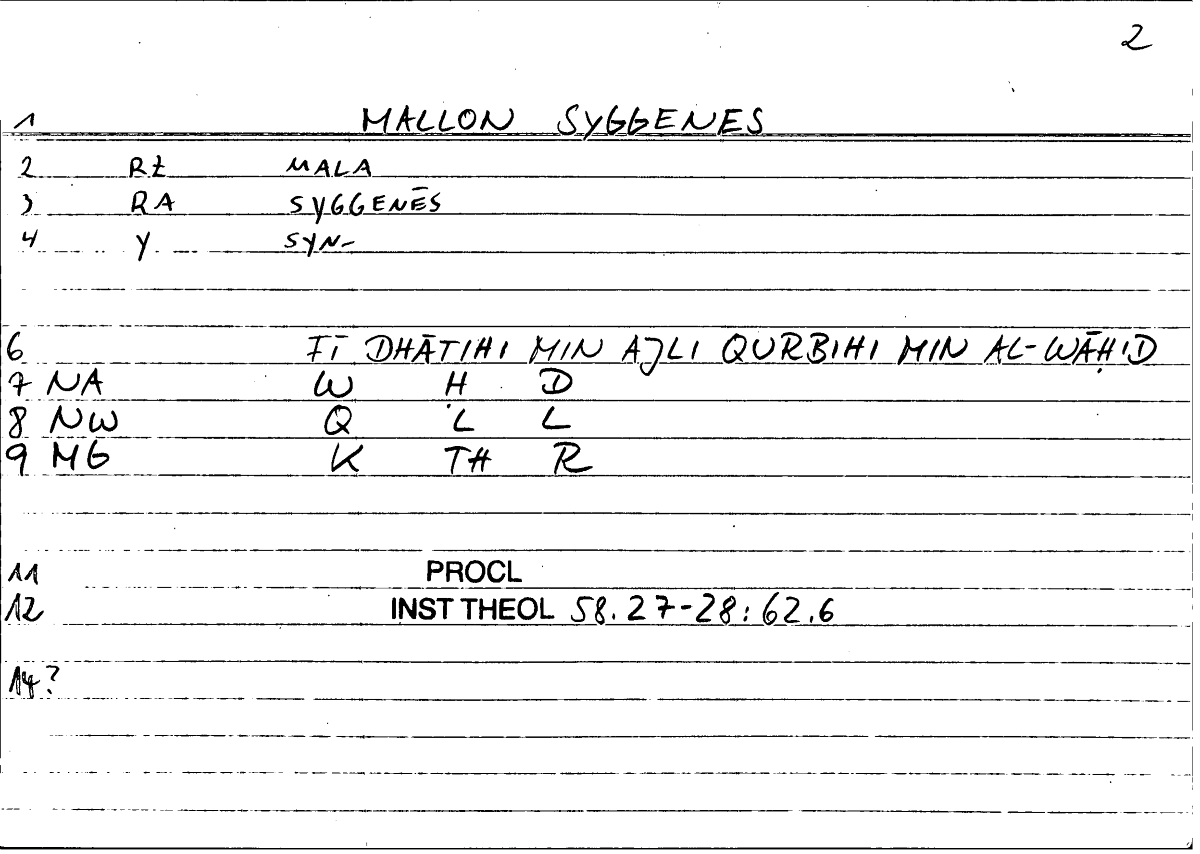 2
1 MALLON SYGGENES
2 RŁ MALA
3 RA SYGGENĒS
4 Y SYN-
6 FĪ DHĀTIHI MIN AJLI QURBIHI MIN AL-WĀḤID
7 NA W Ḥ D
8 NW Q L L
9 MG K TH R
11 PROCL
12 INST THEOL 58.27-28:62.6
14?